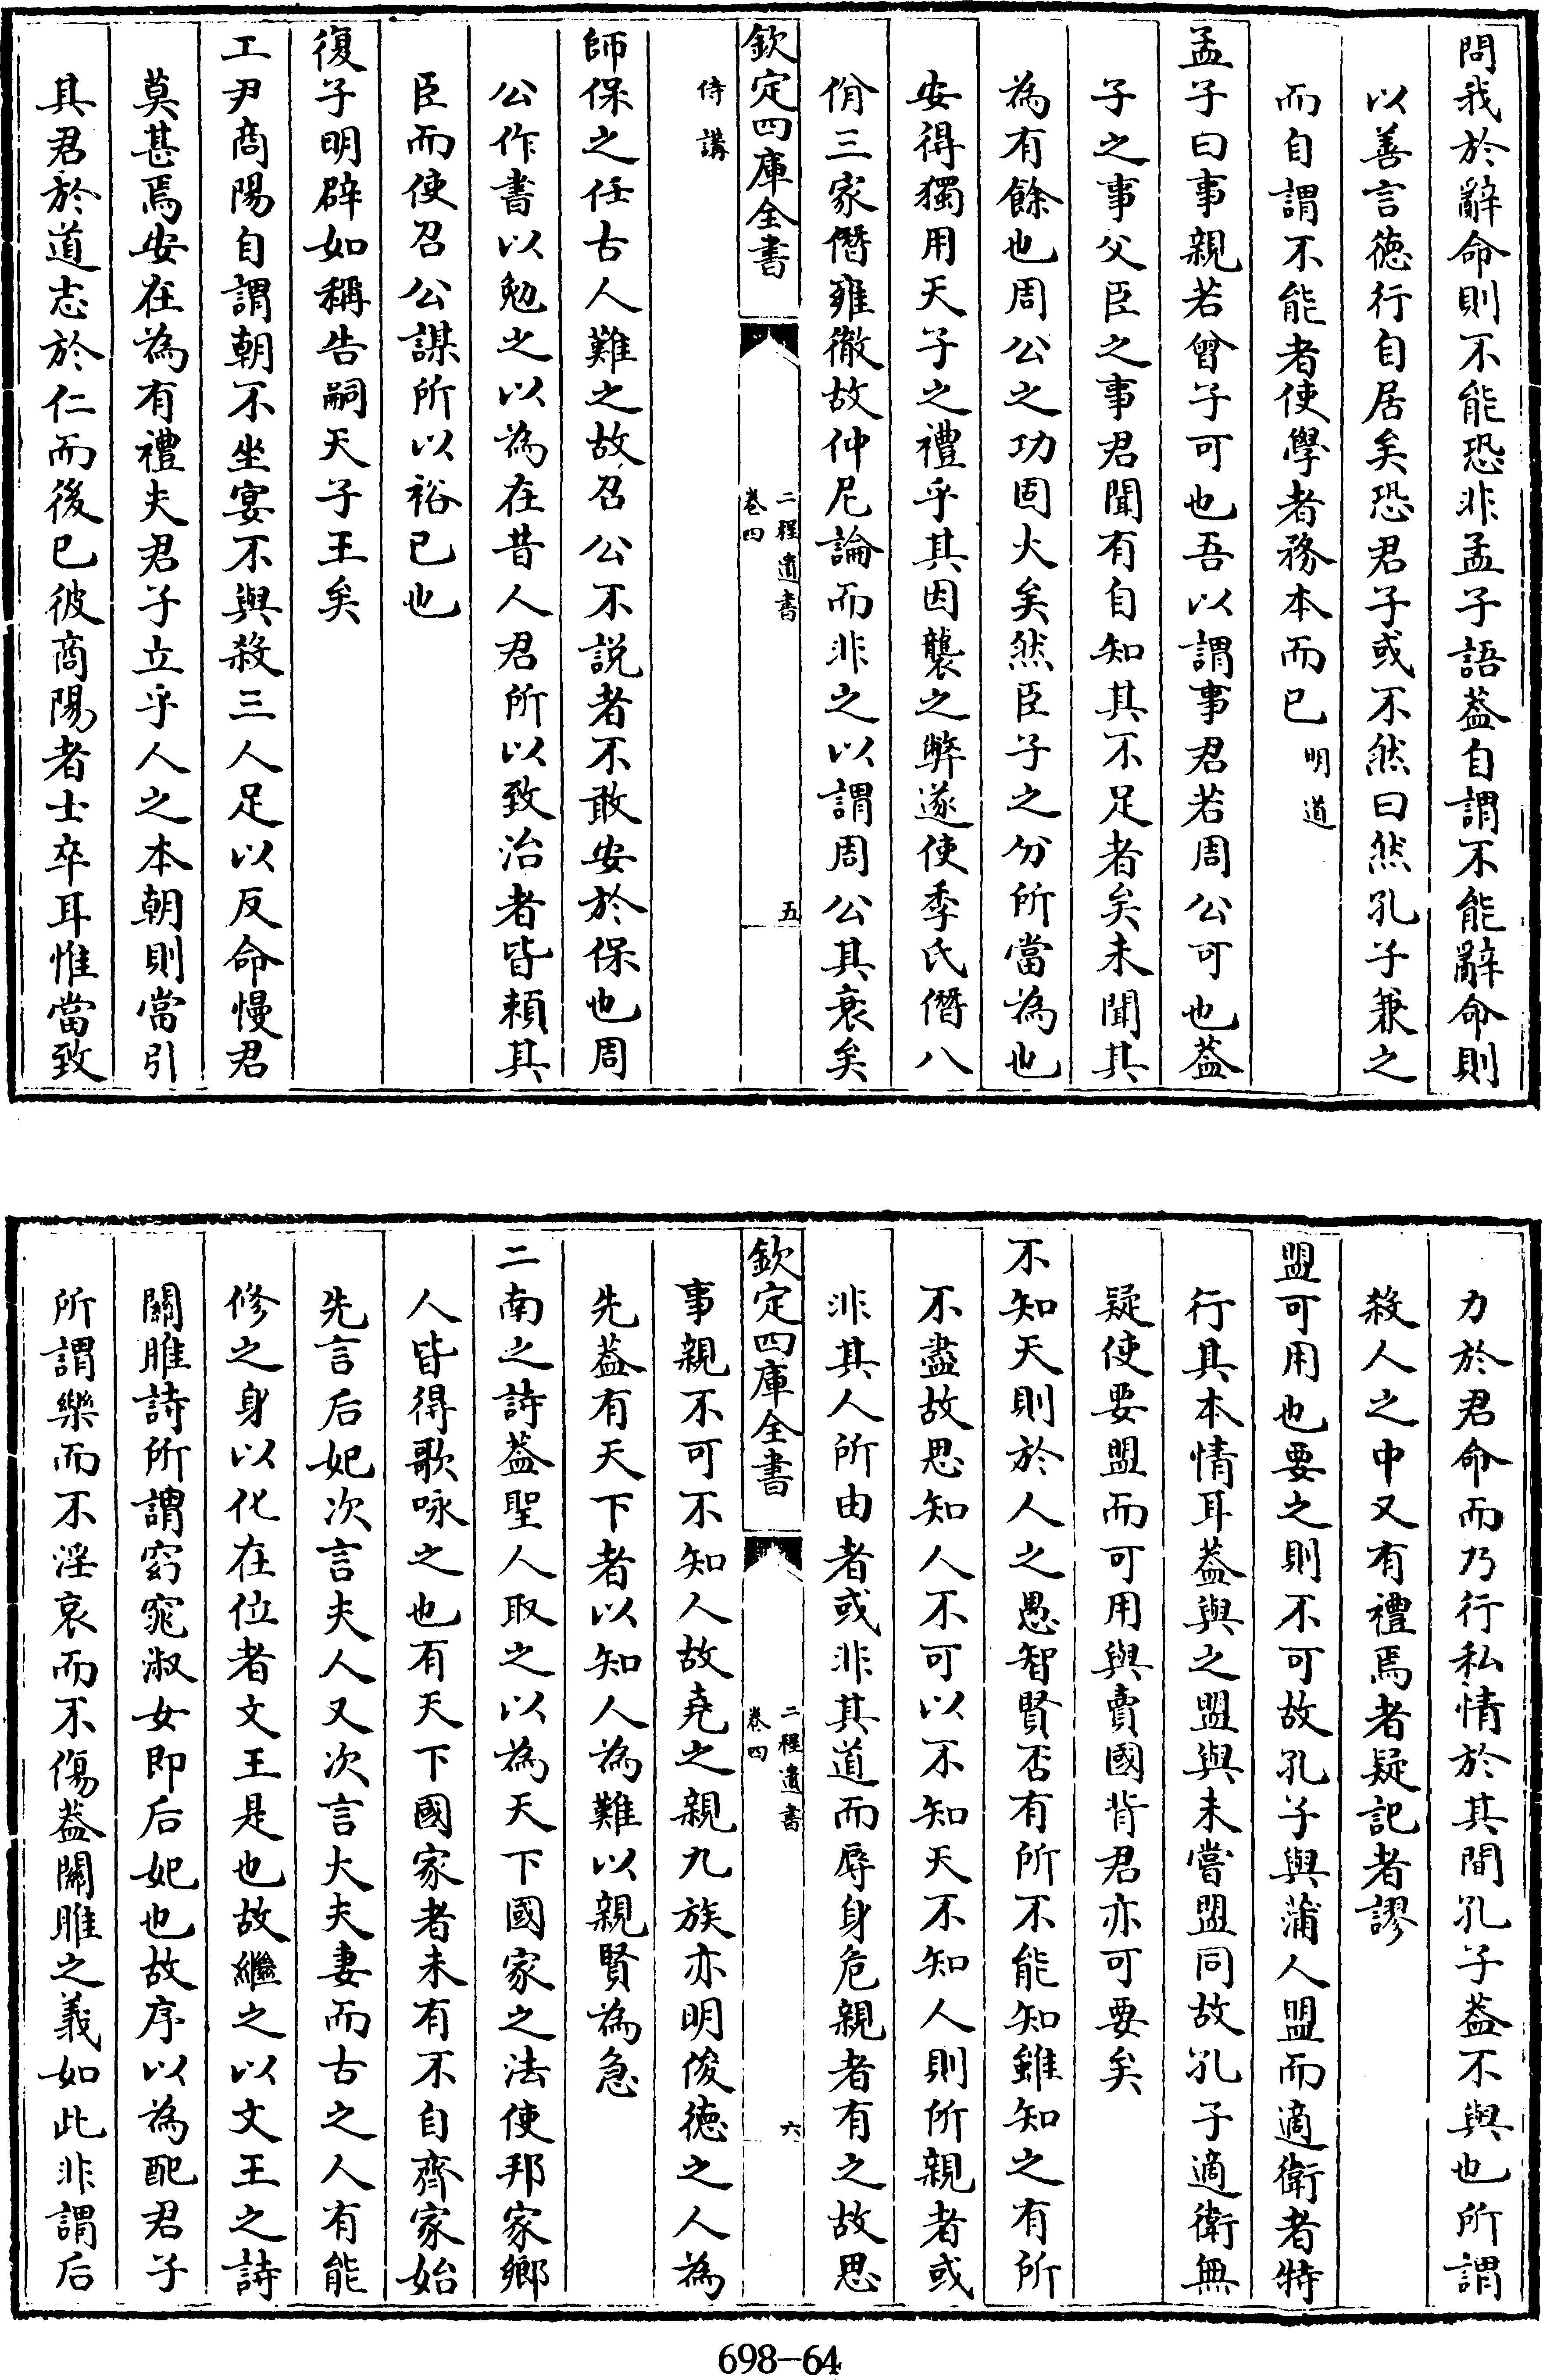 問我於辭命則不能恐非孟子語葢自謂不能辭命則
以善言徳行自居矣恐君子或不然曰然孔子兼之
而自謂不能者使學者務本而已明道
孟子曰事親若曾子可也吾以謂事君若周公可也葢
子之事父臣之事君聞有自知其不足者矣未聞其
為有餘也周公之功固大矣然臣子之分所當為也
安得獨用天子之禮乎其因襲之弊遂使季氏僭八
佾三家僭雍徹故仲尼論而非之以謂周公其衰矣
欽定四庫全書
二程遺書
卷四
五
侍講
師保之任古人難之故召公不説者不敢安於保也周
公作書以勉之以為在昔人君所以致治者皆頼其
臣而使召公謀所以裕已也
復子明辟如稱告嗣天子王矣
工尹商陽自謂朝不坐宴不與殺三人足以反命慢君
莫甚焉安在為有禮夫君子立乎人之本朝則當引
其君於道志於仁而後已彼商陽者士卒耳惟當致
力於君命而乃行私情於其間孔子葢不與也所謂
殺人之中又有禮焉者疑記者謬
盟可用也要之則不可故孔子與蒲人盟而適衛者特
行其本情耳葢與之盟與未嘗盟同故孔子適衛無
疑使要盟而可用與賣國背君亦可要矣
不知天則於人之愚智賢否有所不能知雖知之有所
不盡故思知人不可以不知天不知人則所親者或
非其人所由者或非其道而辱身危親者有之故思
欽定四庫全書
二程遺書
卷四
六
事親不可不知人故堯之親九族亦明俊徳之人為
先葢有天下者以知人為難以親賢為急
二南之詩葢聖人取之以為天下國家之法使邦家鄉
人皆得歌咏之也有天下國家者未有不自齊家始
先言后妃次言夫人又次言大夫妻而古之人有能
修之身以化在位者文王是也故繼之以文王之詩
關雎詩所謂窈窕淑女即后妃也故序以為配君子
所謂樂而不淫哀而不傷葢關雎之義如此非謂后
698-64